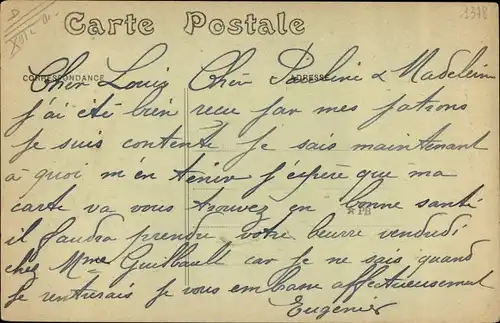 1378
Carte Postale
CORRESPONDANCE ADRESSE
Cher Louis Chér Pauline & Madeleine
j'ai été bien recu par mes patrons
je suis contente je sais maintenant
à quoi m'en tenir j'éspère que ma
carte va vous trouvez en bonne santé
★ PB
il faudra prendre votre beurre vendudi
chez Mme Guilbault car je ne sais quand
je rentrerais je vous embrasse affectueusement
Eugénie